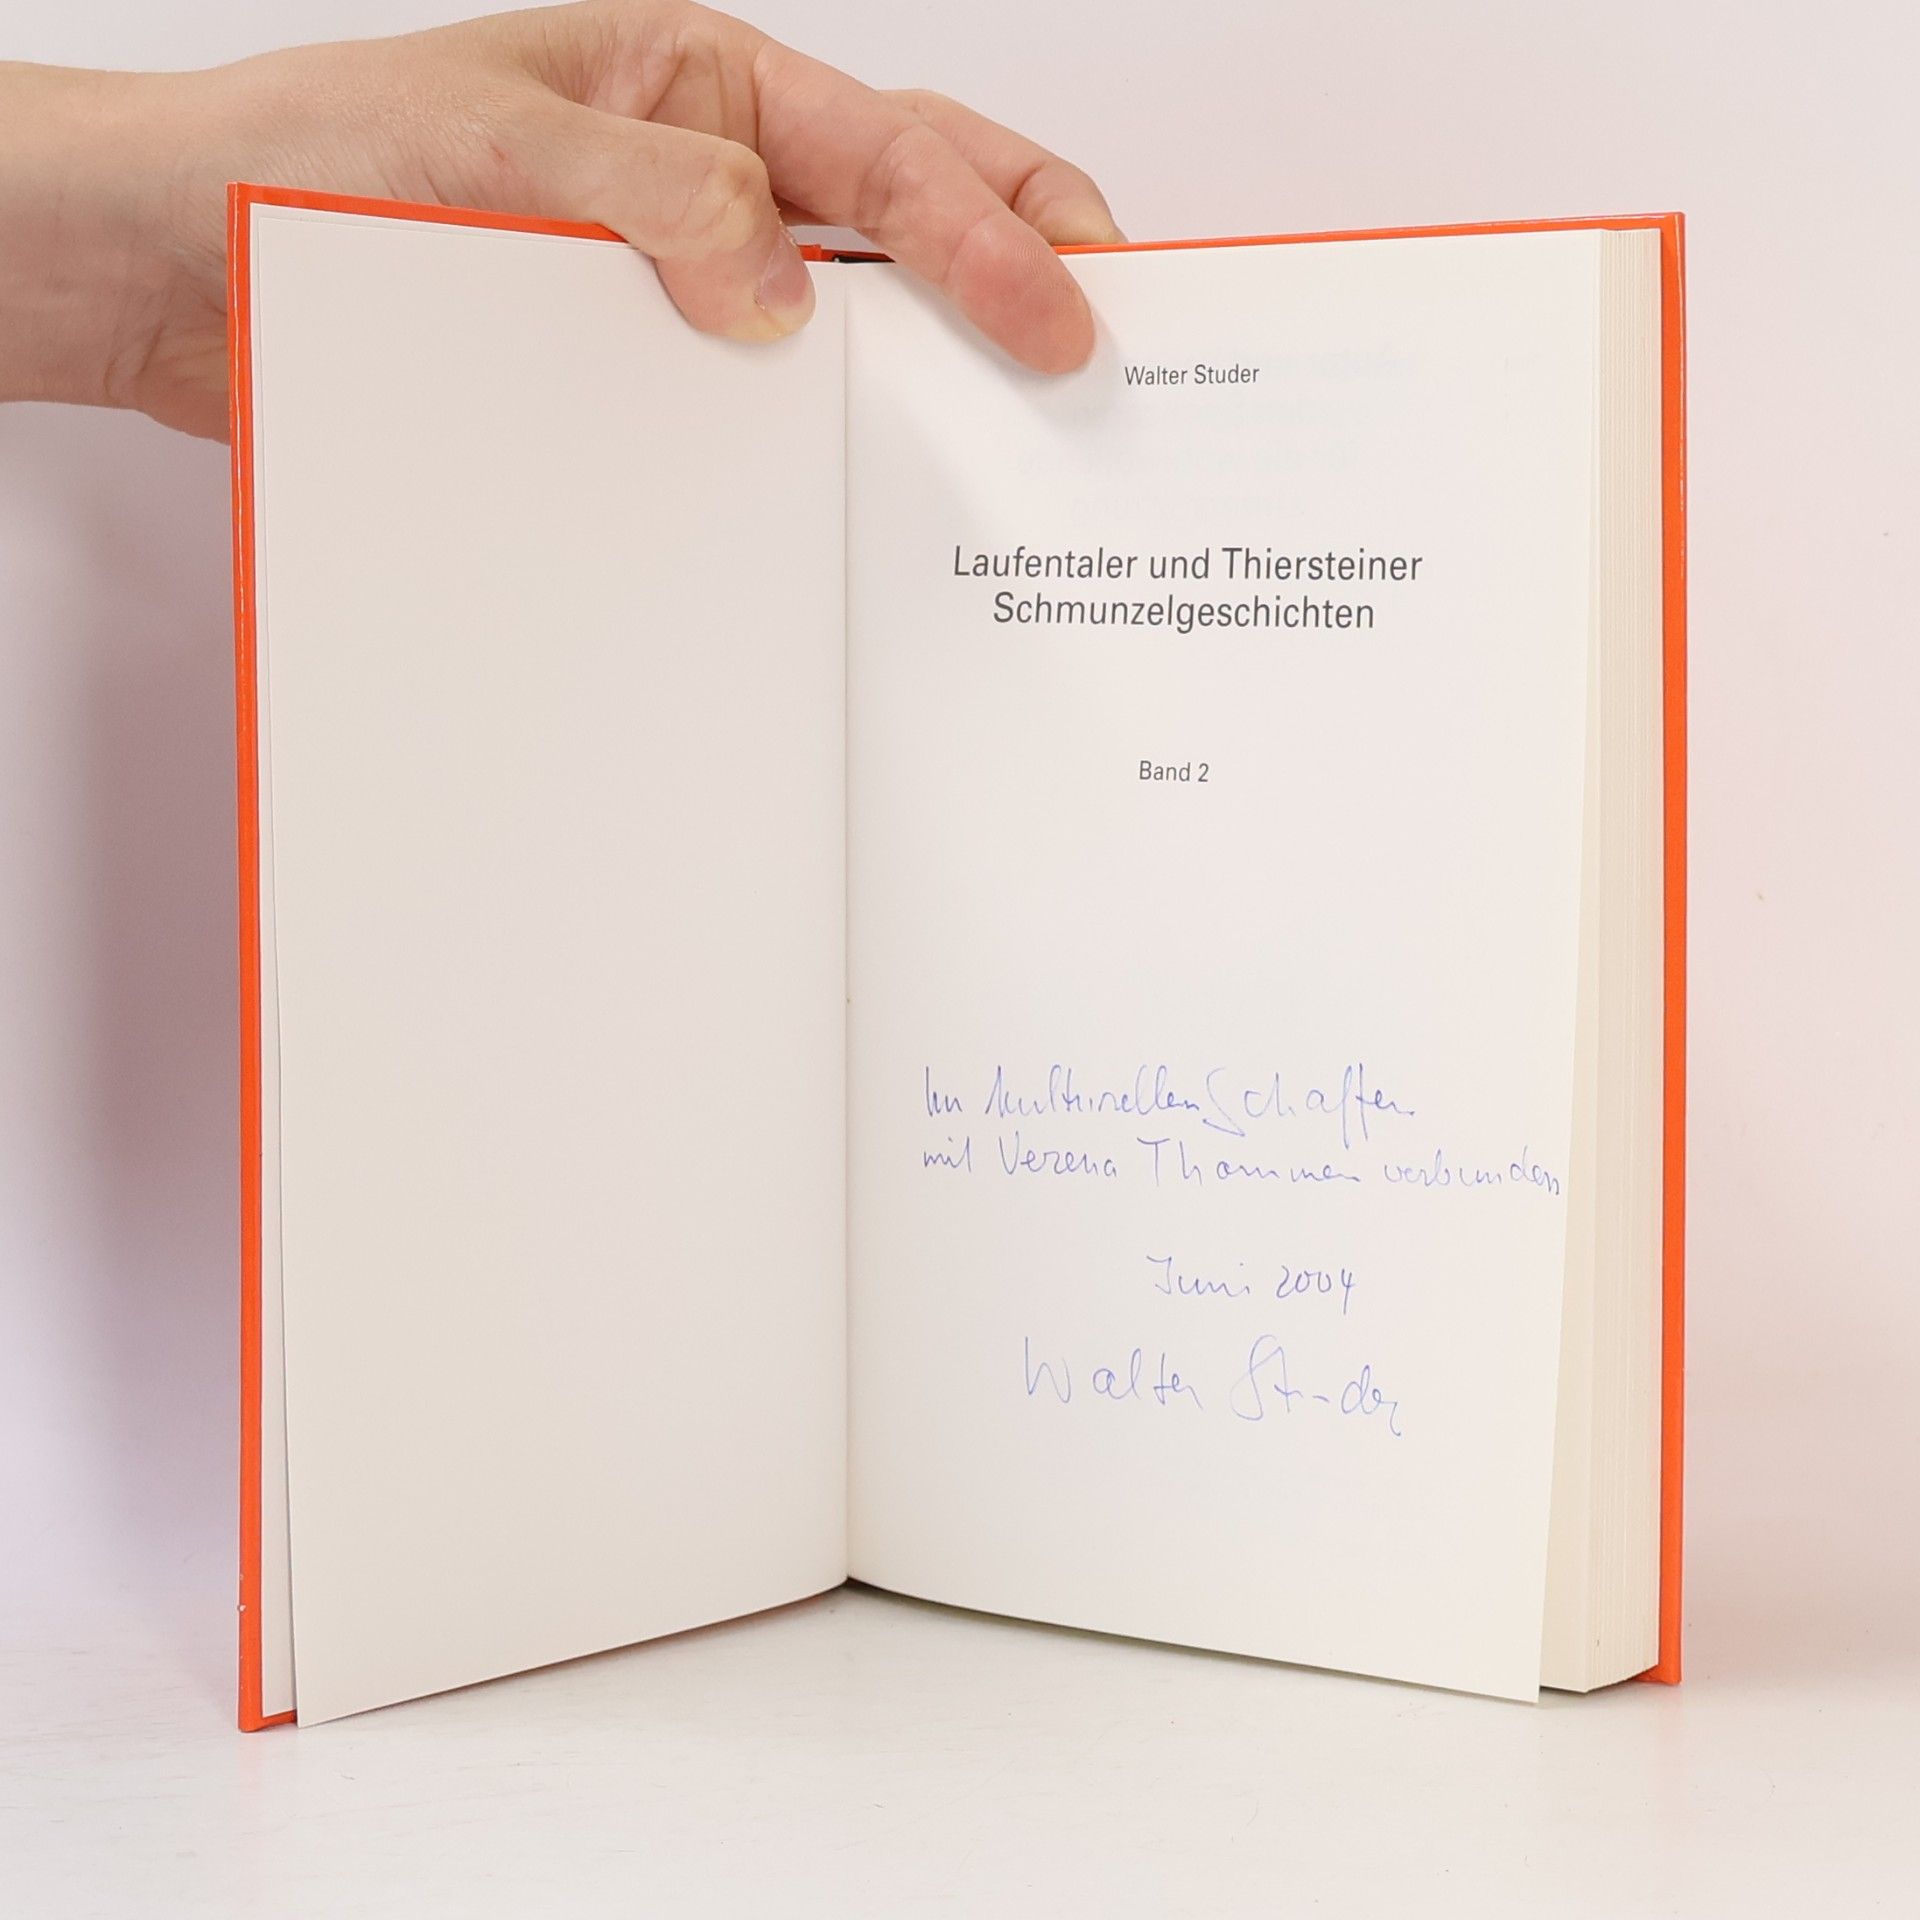 Walter Studer
Laufentaler und Thiersteiner
Schmunzelgeschichten
Band 2
Im kulturellen Schaffen
mit Verena Thommen verbunden
Juni 2004
Walter Studer